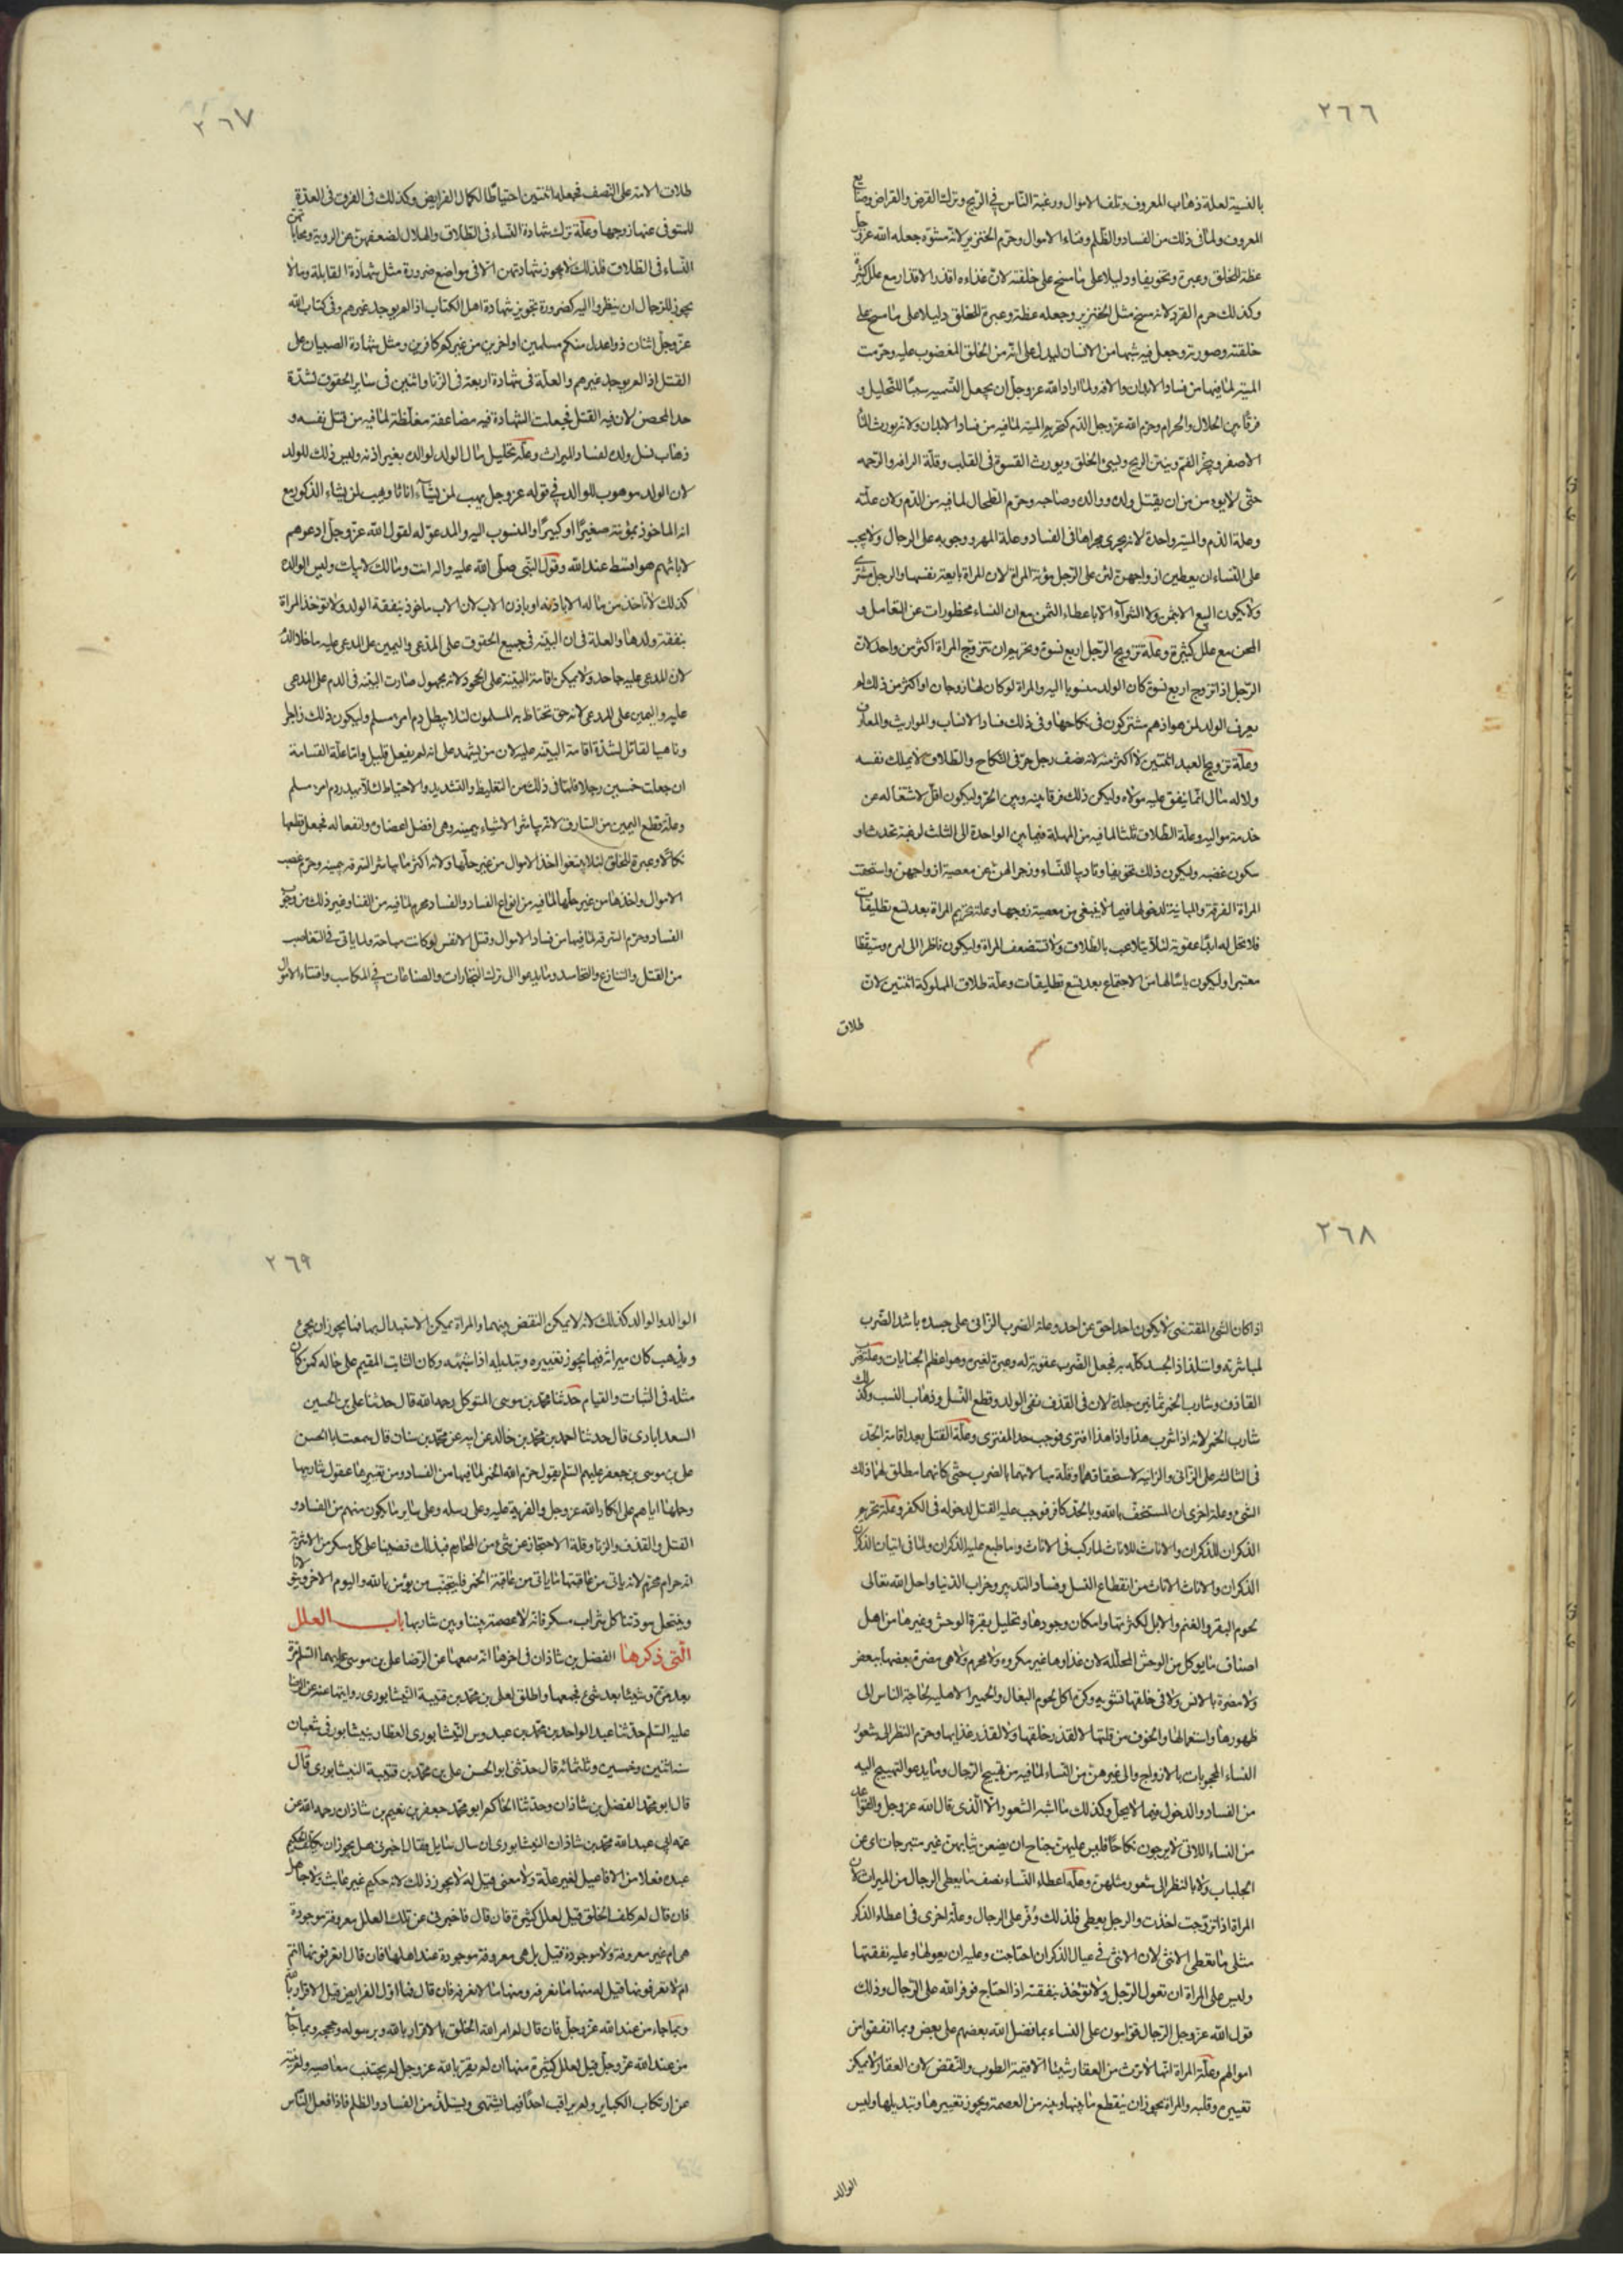 ٢٦٦
بالنسية لعلة ذهاب المعروف وتلف الاموال ورغبة الناس في الربح وتركهم القرض والقراض وصنايع
المعروف ولما في ذلك من الفساد والظلم وفناء الاموال وحرم الخنزير لانه مشوه جعله الله عز وجل
عظة للخلق وعبرة وتخويفا ودليلا على ما مسخ على خلقته لان غذاءه اقذر الاقذار مع علل كثيرة
وكذلك حرم القرد لانه مسخ مثل الخنزير وجعله عظة وعبرة للخلق دليلا على ما مسخ على
خلقته وصورته وجعل فيه شبها من الانسان ليدل على انه من الخلق المغضوب عليه وحرمت
الميتة لما فيها من فساد الابدان والافة ولما اراد الله عز وجل ان يجعل التسمية سببا للتحليل و
فرقا بين الحلال والحرام وحرم الله عز وجل الدم كتحريم الميتة لما فيه من فساد الابدان ولانه يورث الماء
الاصفر ويبخر الفم وينتن الريح ويسئ الخلق ويورث القسوة في القلب وقلة الرافه والرحمه
حتى لا يومن من ان يقتل ولده ووالده وصاحبه وحرم الطحال لما فيه من الدم ولان علته
وعلة الدم والميتة واحدة لانه يجرى مجراها في الفساد وعلة المهر ووجوبه على الرجال ولا يجب
على النساء ان يعطين ازواجهن لان على الرجل مؤنة المراة لان المراة بايعة نفسها والرجل مشترى
ولا يكون البيع الا بثمن ولا الشراء الا باعطاء الثمن مع ان النساء محظورات عن التعامل و
المجئ مع علل كثيرة وعلة تزويج الرجل اربع نسوة وتحريم ان تتزوج المراة اكثر من واحد لان
الرجل اذا تزوج اربع نسوة كان الولد منسوبا اليه والمراة لو كان لها زوجان او اكثر من ذلك لم
يعرف الولد لمن هو اذ هم مشتركون في نكاحها وفي ذلك فساد الانساب والمواريث والمعارف
وعلة تزويج العبد اثنتين لا اكثر منه لانه نصف رجل حر في النكاح والطلاق لا يملك نفسه
ولا له مال انما ينفق عليه مولاه وليكن ذلك فرقا بينه وبين الحر وليكون اقل لاشتغاله عن
خدمة مواليه وعلة الطلاق ثلثا لما فيه من المهلة فيما بين الواحدة الى الثلث لرغبة تحدث او
سكون غضبه وليكون ذلك تخويفا وتاديبا للنساء وزجرا لهن عن معصية ازواجهن واستحقت
المراة الفرقة والمباينة لدخولها فيما لا ينبغي من معصية زوجها وعلة تحريم المراة بعد تسع تطليقات
فلا تحل له ابدا عقوبة لئلا يتلاعب بالطلاق ولا تستضعف المراة وليكون ناظرا الى امره متيقظا
معتبرا وليكون يأسا لهما من الاجتماع بعد تسع تطليقات وعلة طلاق المملوكة اثنتين لان
طلاق
٢٦٧
طلاق الامة على النصف فجعله اثنتين احتياطا لكمال الفرايض وكذلك في الفرق في العدة
للمتوفى عنها زوجها وعلة ترك شهادة النساء في الطلاق والهلال لضعفهن عن الروية ومحاباتهن
النساء في الطلاق فلذلك لا يجوز شهادتهن الا في مواضع ضرورة مثل شهادة القابلة وما لا
يجوز للرجال ان ينظروا اليه كضرورة تجويز شهادة اهل الكتاب اذا لم يوجد غيرهم وفي كتاب الله
عز وجل اثنان ذوا عدل منكم مسلمين او اخرين من غيركم كافرين ومثل شهادة الصبيان على
القتل اذا لم يوجد غيرهم والعلة في شهادة اربعة في الزنا واثنين في ساير الحقوق لشدة
حد المحصن لان فيه القتل فجعلت الشهادة فيه مضاعفة مغلظة لما فيه من قتل نفسه و
ذهاب نسل ولده لفساد الميراث وعلة تحليل مال الولد لوالده بغير اذنه وليس ذلك للولد
لان الولد موهوب للوالد في قوله عز وجل يهب لمن يشاء اناثا ويهب لمن يشاء الذكور مع
انه الماخوذ بمؤنته صغيرا او كبيرا والمنسوب اليه والمدعو له لقول الله عز وجل ادعوهم
لابائهم هو اقسط عند الله وقول النبي صلى الله عليه واله انت ومالك لابيك وليس الوالدة
كذلك لا تاخذ من ماله الا باذنه او باذن الاب لان الاب ماخوذ بنفقة الولد ولا تؤخذ المراة
بنفقة ولدها والعلة في ان البينة في جميع الحقوق على المدعى واليمين على المدعى عليه ما خلا الدم
لان المدعى عليه جاحد ولا يمكن اقامة البينة على الجحود لانه مجهول صارت البينة في الدم على المدعى
عليه واليمين على المدعى لانه حق تحتاط به المسلمون لئلا يبطل دم امرء مسلم وليكون ذلك زاجرا
وناهيا لقاتل لشدة اقامة البينة عليه لان من يشهد على انه لم يفعل قليل واما علة القسامة
ان جعلت خمسين رجلا فلما في ذلك من التغليظ والتشديد والاحتياط لئلا يهدر دم امرء مسلم
وعلة قطع اليمين من السارق لانه يباشر الاشياء بيمينه وهى افضل اعضائه وانفعها له فجعل قطعها
نكالا وعبرة للخلق لئلا يبتغوا اخذ الاموال من غير حلها ولانه اكثر ما يباشر السرقة بيمينه وحرم غصب
الاموال واخذها من غير حلها لما فيه من انواع الفساد والفساد محرم لما فيه من الفناء وغير ذلك من وجوه
الفساد وحرم السرقة لما فيها من فساد الاموال وقتل الانفس لو كانت مباحة ولما ياتي في التغاصب
من القتل والتنازع والتحاسد وما يدعو الى ترك التجارات والصناعات في المكاسب واقتناء الاموال
٢٦٨
اذا كان الشئ المقتنى لا يكون احد احق من احد وعلة الضرب الزاني على جسده باشد الضرب
لمباشرته واستلذاذ الجسد كله به فجعل الضرب عقوبة له وعبرة لغيره وهو اعظم الجنايات وعلة ضرب
القاذف وشارب الخمر ثمانين جلدة لان في القذف نفى الولد وقطع النسل وذهاب النسب وكذلك
شارب الخمر لانه اذا شرب هذا واذا هذا افترى فوجب حد المفترى وعلة القتل بعد اقامة الحد
في الثالثة على الزاني والزانية لاستحقاقهما وقلة مبالاتهما بالضرب حتى كانهما مطلق لهما ذلك
الشئ وعلة اخرى ان المستخف بالله وبالحد كافر فوجب عليه القتل لدخوله في الكفر وعلة تحريم
الذكران للذكران والاناث للاناث لما ركب في الاناث وما طبع عليه الذكران ولما في اتيان الذكران
الذكران والاناث الاناث من انقطاع النسل وفساد التدبير وخراب الدنيا واحل الله تعالى
لحوم البقر والغنم والابل لكثرتها وامكان وجودها وتحليل بقرة الوحش وغيرها من اهل
اصناف ما يوكل من الوحش المحللة لان غذاوها غير مكروه ولا محرم ولا هى مضرة بعضها ببعض
ولا مضرة بالانس ولا في خلقها تشويه وكره اكل لحوم البغال والحمير الاهلية لحاجة الناس الى
ظهورها واستعمالها والخوف من قلتها لا لقذر خلقها ولا لقذر غذايها وحرم النظر الى شعور
النساء المحجوبات بالازواج والى غيرهن من النساء لما فيه من تهييج الرجال وما يدعو التهييج اليه
من الفساد والدخول فيما لا يحل وكذلك ما اشبه الشعور الا الذى قال الله عز وجل والقواعد
من النساء اللاتي لا يرجون نكاحا فليس عليهن جناح ان يضعن ثيابهن غير متبرجات اى غير
الجلباب ولا باس بالنظر الى شعور مثلهن وعلة اعطاء النساء نصف ما يعطى الرجال من الميراث لان
المراة اذا تزوجت اخذت والرجل يعطى فلذلك وفر على الرجال وعلة اخرى في اعطاء الذكر
مثلى ما تعطى الانثى لان الانثى في عيال الذكر ان احتاجت وعليه ان يعولها وعليه نفقتها
وليس على المراة ان تعول الرجل ولا تؤخذ بنفقته اذا احتاج فوفر الله على الرجال وذلك
قول الله عز وجل الرجال قوامون على النساء بما فضل الله بعضهم على بعض وبما انفقوا من
اموالهم وعلة المراة انها لا ترث من العقار شيئا الا قيمة الطوب والنقض لان العقار لا يمكن
تغييره وقلبه والمراة يجوز ان ينقطع ما بينها وبينه من العصمة ويجوز تغييرها وتبديلها وليس
الوالد
٢٦٩
الوالد والوالد كذلك لانه لا يمكن التقص منهما والمراة يمكن الاستبدال بها فما يجوز ان يجئ
ويذهب كان ميراثه فيما يجوز تغييره وتبديله اذا اشبهه وكان الثابت المقيم على حاله كمن كان
مثله في الثبات والقيام حدثنا محمد بن موسى المتوكل رحمه الله قال حدثنا على بن الحسين
السعدابادى قال حدثنا احمد بن محمد بن خالد عن ابيه عن محمد بن سنان قال سمعت ابا الحسن
على بن موسى بن جعفر عليهم السلم يقول حرم الله الخمر لما فيها من الفساد ومن تغييرها عقول شاربيها
وحملها اياهم على انكار الله عز وجل والفرية عليه وعلى رسله وعلى ساير ما يكون منهم من الفساد و
القتل والقذف والزنا وقلة الاحتجاز عن شئ من المحارم فبذلك قضينا على كل مسكر من الاشربة
انه حرام محرم لانه ياتى من عاقبتها ما ياتى من عاقبة الخمر فليتجنب من يؤمن بالله واليوم الاخر ويتولانا
وينتحل مودتنا كل شراب مسكر فانه لا عصمة بيننا وبين شاربها باب العلل
التى ذكرها الفضل بن شاذان في اخرها انه سمعها عن الرضا على بن موسى عليهما السلم مرة
بعد مرة وشيئا بعد شئ فجمعها واطلق لعلى بن محمد بن قتيبة النيشابورى روايتها عنه عن الرضا
عليه السلم حدثنا عبد الواحد بن محمد بن عبدوس النيشابورى العطار بنيشابور في شعبان
سنة اثنتين وخمسين وثلثمائة قال حدثني ابو الحسن على بن محمد بن قتيبة النيشابورى قال
قال ابو محمد الفضل بن شاذان وحدثنا الحاكم ابو محمد جعفر بن نعيم بن شاذان رحمه الله عن
عمه ابى عبد الله محمد بن شاذان النيشابورى ان سال سايل فقال اخبرني هل يجوز ان يكلف الحكيم
عبده فعلا من الافاعيل لغير علة ولا معنى قيل له لا يجوز ذلك لانه حكيم غير عابث ولا جاهل
فان قال لم كلف الخلق قيل لعلل كثيرة فان قال فاخبرني عن تلك العلل معروفة موجودة
هى ام غير معروفة ولا موجودة قيل بل هى معروفة موجودة عند اهلها فان قال اتعرفونها انتم
ام لا تعرفونها قيل له منها ما نعرفه ومنها ما لا نعرفه فان قال فما اول الفرايض قيل الاقرار بالله
وبما جاء من عند الله عز وجل فان قال لم امر الله الخلق بالاقرار بالله وبرسوله وحججه وبما جاء
من عند الله عز وجل قيل لعلل كثيرة منها ان لم يقر بالله عز وجل لم يجتنب معاصيه ولم ينته
عن ارتكاب الكباير ولم يراقب احدا فيما يشتهى ويستلذ من الفساد والظلم فاذا فعل الناس